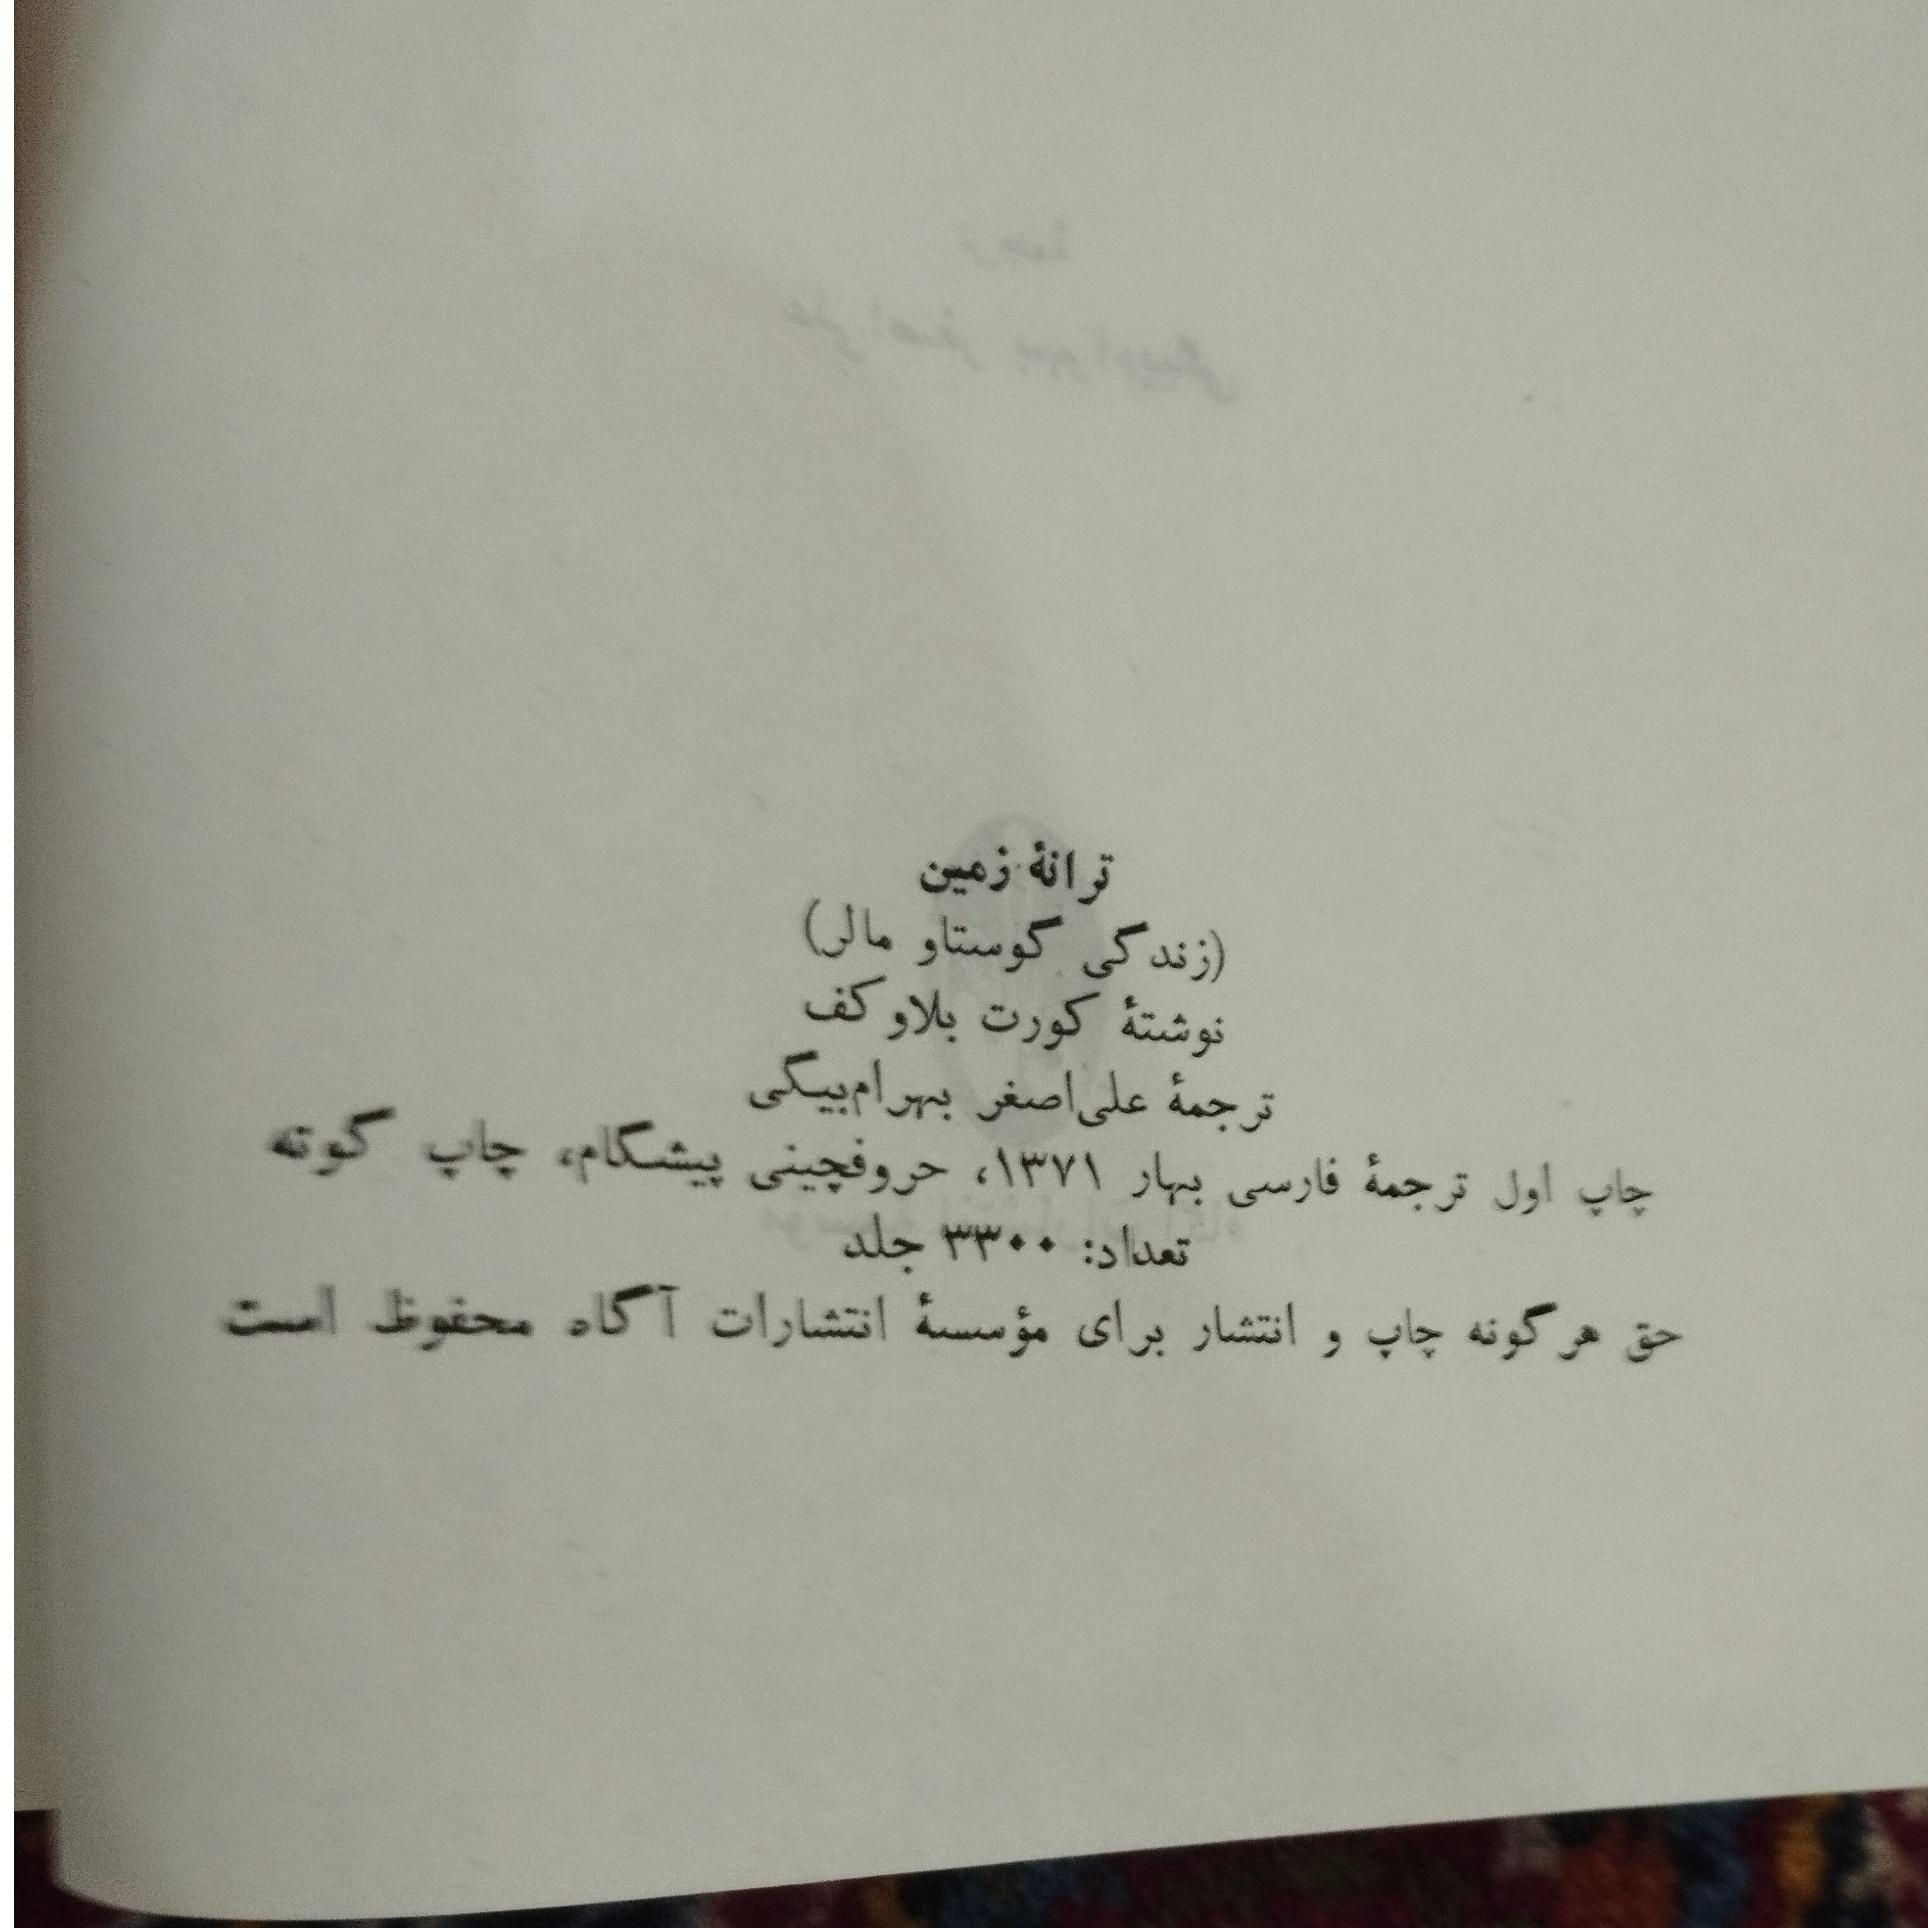 ترانهٔ زمین
(زندگی گوستاو مالر)
نوشتهٔ کورت بلاوکف
ترجمهٔ علی‌اصغر بهرام‌بیگی
چاپ اول ترجمهٔ فارسی بهار ۱۳۷۱، حروفچینی پیشگام، چاپ گوته
تعداد: ۳۳۰۰ جلد
حق هرگونه چاپ و انتشار برای مؤسسهٔ انتشارات آگاه محفوظ است